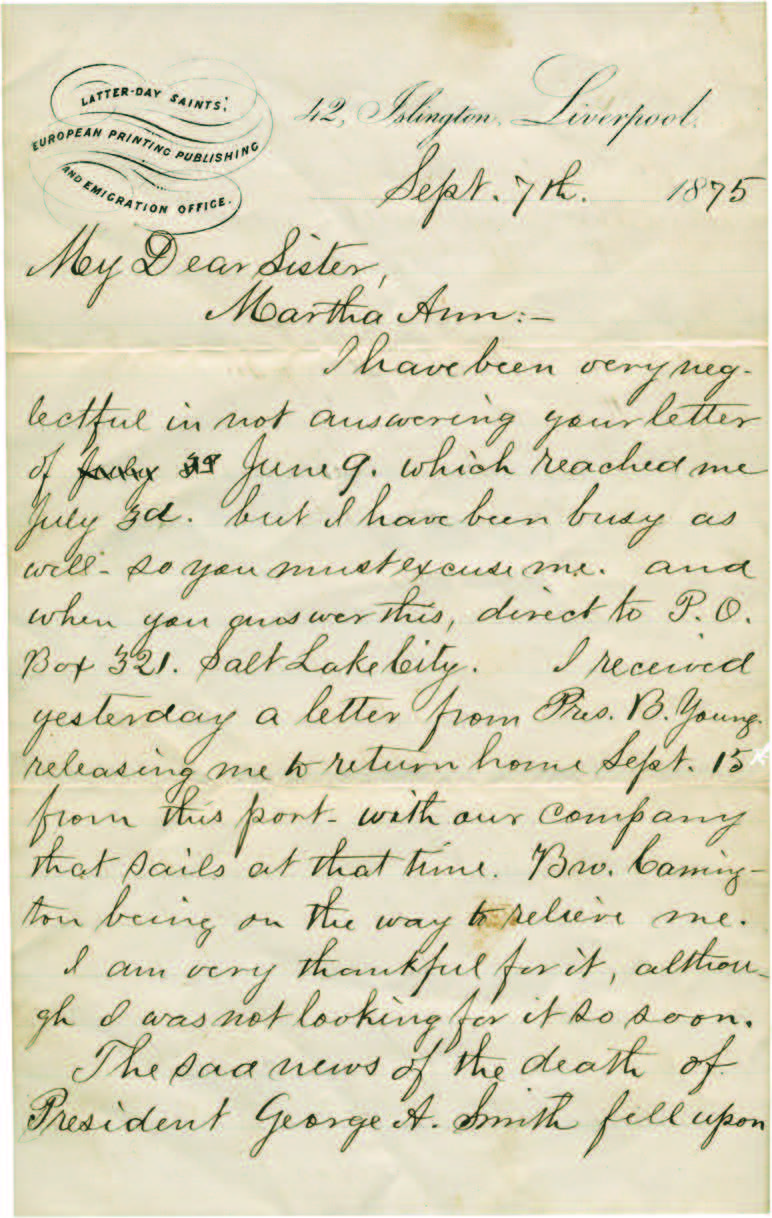 LATTER-DAY SAINTS',
EUROPEAN PRINTING PUBLISHING
AND EMIGRATION OFFICE.
42, Islington, Liverpool.
Sept. 7th. 1875
My Dear Sister,
Martha Ann:—
I have been very neg-
lectful in not answering your letter
of July 3d June 9. which reached me
July 3d. but I have been busy as
well- so you must excuse me. and
when you answer this, direct to P.O.
Box 321. Salt Lake City. I received
yesterday a letter from Pres. B. Young.
releasing me to return home Sept. 15
from this port- with our company
that sails at that time. Bro. Caring-
ton being on the way to relieve me.
I am very thankful for it, althou-
gh I was not looking for it so soon.
The sad news of the death of
President George A. Smith fell upon